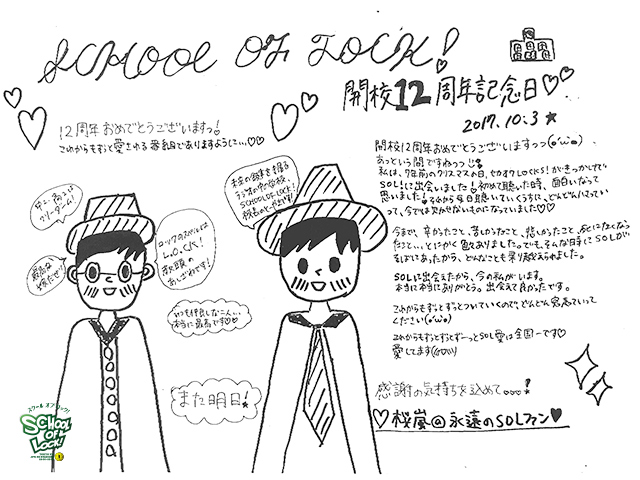 SCHOOL OF LOCK!
開校12周年記念日♡
2017.10.3★
12周年おめでとうございますっ!
これからもずっと愛される番組でありますようにし…♡♡
開校12周年おめでとうございますっっ(o'ω'o)
あっという間ですねっっ!!
私は、7年前のクリスマスの日、セカオワLOCKS!がきっかけで
SOL!に出会いました!初めて聴いた時、面白いなって
思いました!そこから毎日聴いていくうちに、どんどんハマってい
って、今では欠かせないものになっていました♡♡
今まで、辛かったこと、苦しかったこと、悲しかったこと、死にたくなっ
たこと…とにかく色々ありました。でも、そんな日でもSOLが
そばにあったから、どんなことも乗り越えられました。
SOLに出会えたから、今の私がいます。
本当に本当にありがとう。出会えて良かったです。
これからもずっとずっとついていくので、どんどん飛ばしていって
ください(o'ω'o)
これからもずっとずっとずーっとSOL愛は全国一です♡
愛してます
感謝の気持ちを込めて…!
♡桜嵐@永遠のSOLファン♥
最高な
ロックのスペルは
L.O.C.K!
教頭の
あしざわです!
未来の鍵を握る
ラジオの中の学校、
SCHOOL OF LOCK!
校長のとーやまです!
いつも仲良しな二人…
本当に最高です♡♡
また明日!
スクール オブ ロック!
SCHOOL
OF
LOCK!